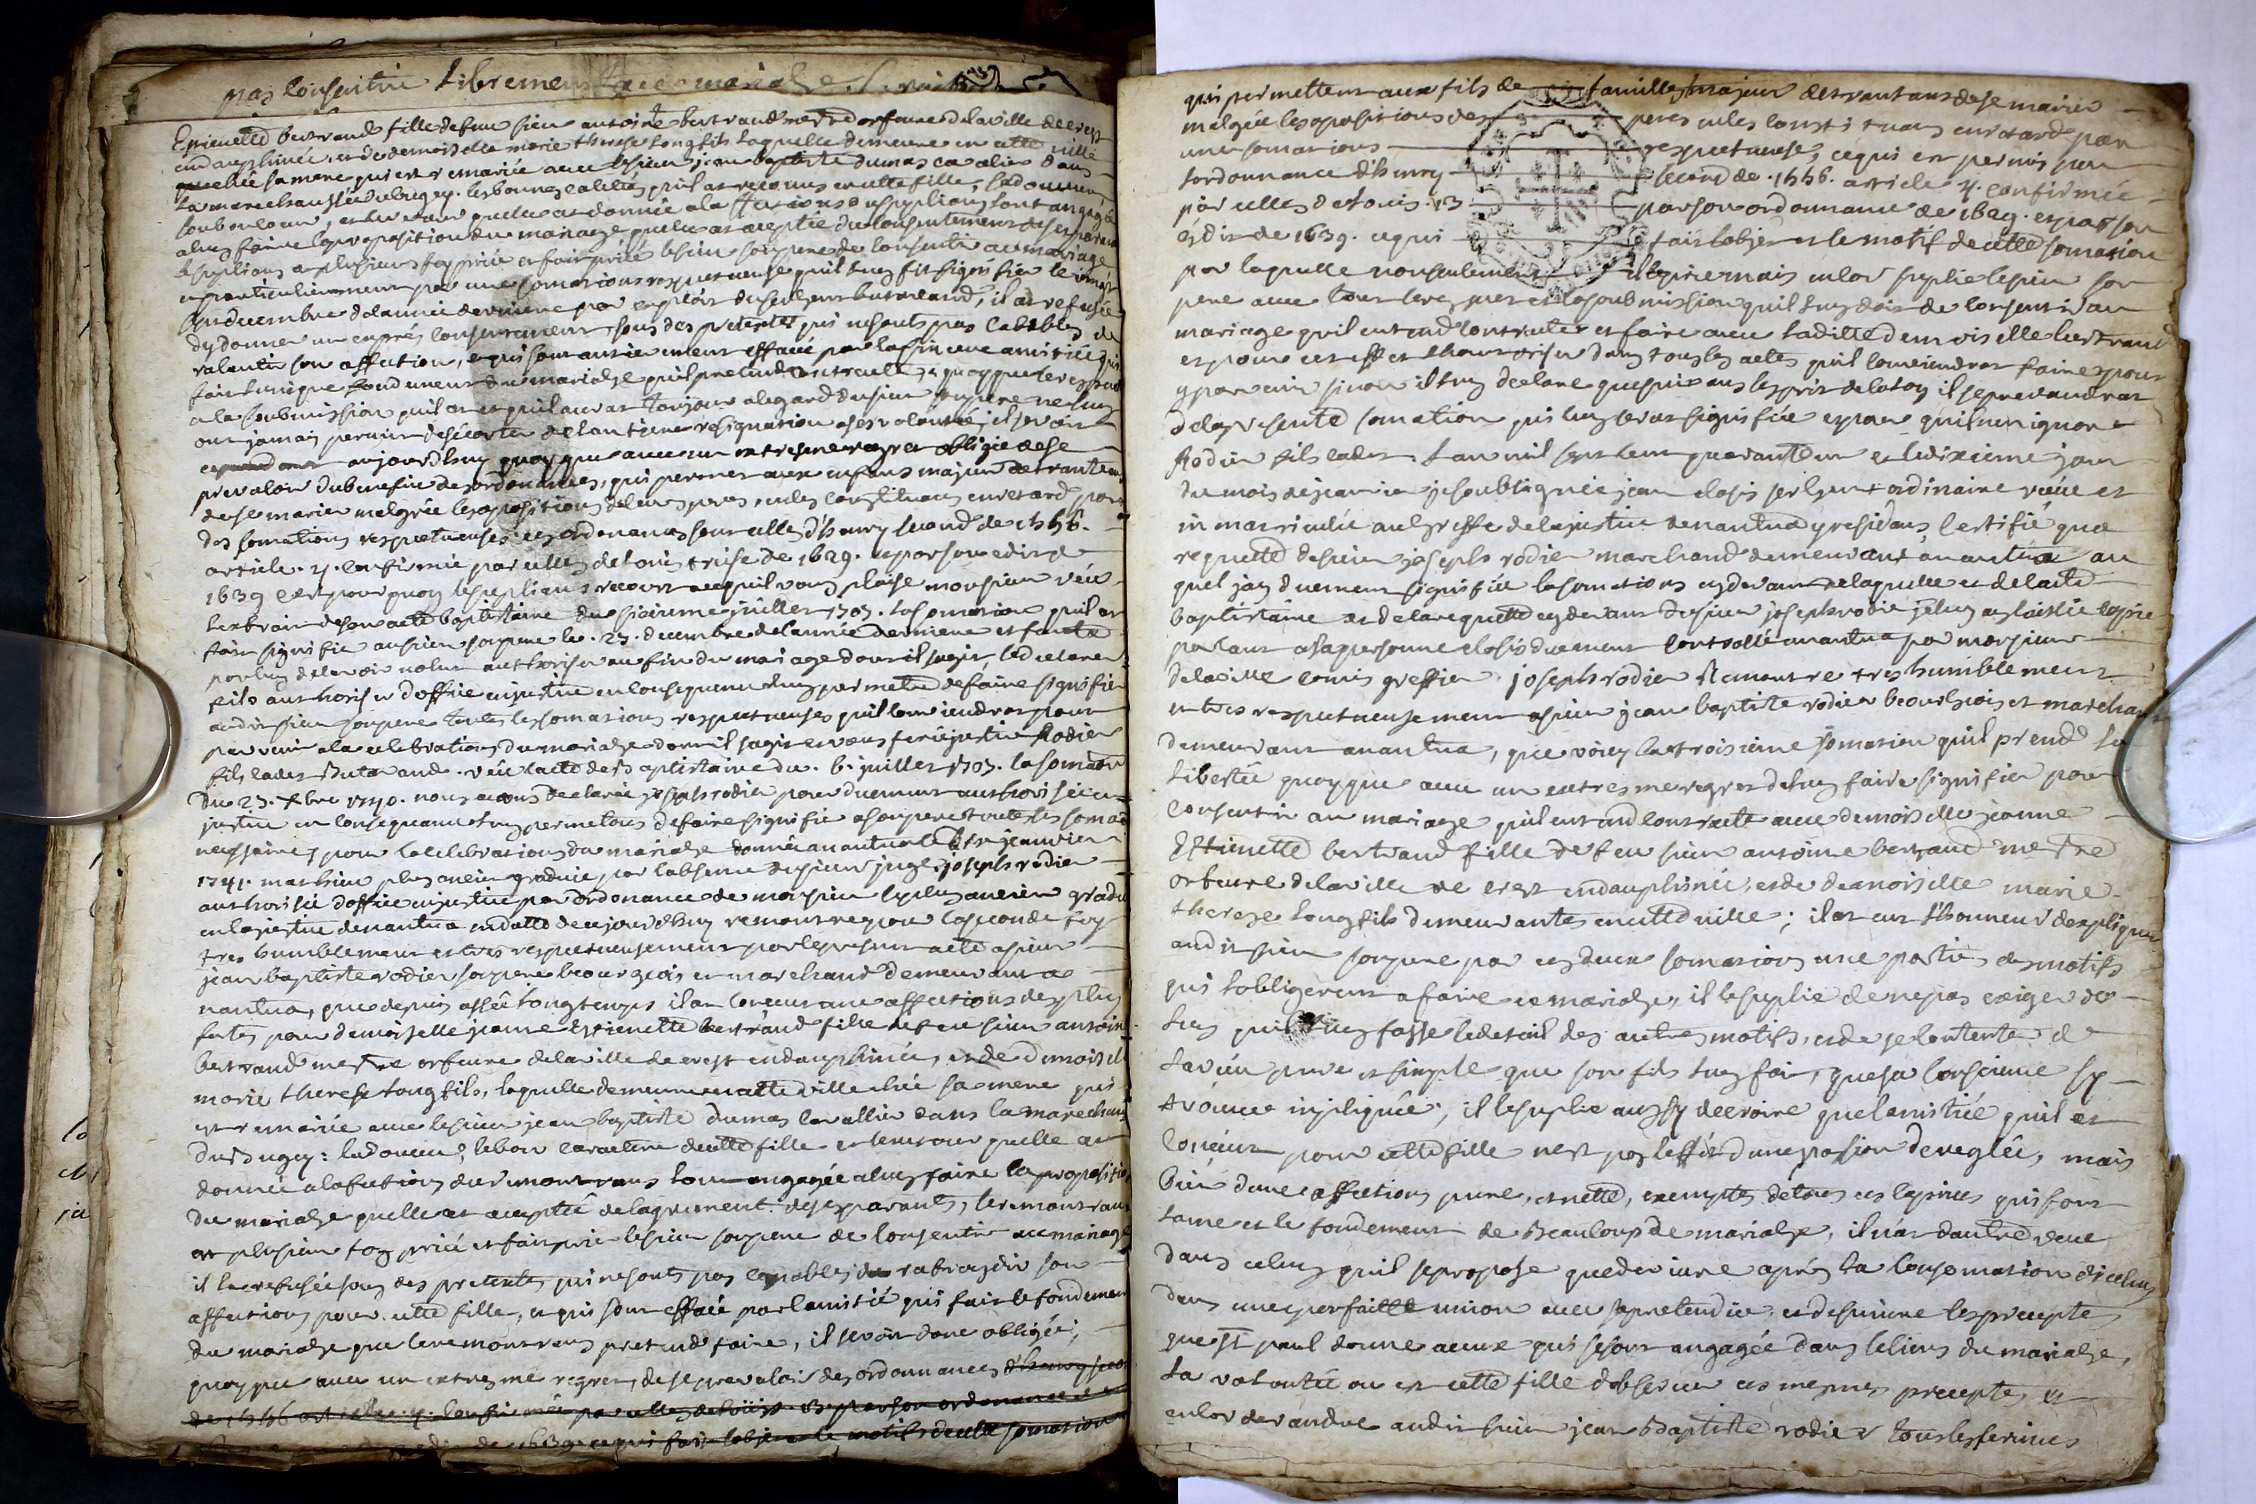 pas consentir librement
Etienette bertrand fille de feu sieur antoine bertrand me orfevre de la ville de crest
en dauphinée, et de demoiselle marie therese longfils laquelle demeure en cette ville
sa mere qui est remariée avec le sieur jean baptiste dumas cavalier dans
la marechaussée du bugey. les bonnes calités qu'il at reconnus en cette fille, la douceur
a luy faire la proposition du mariage quelle at aceptée du consentement de ses parens
le supliant a plusieurs foy prié et fait prié le sieur son pere de consentir au mariage
et particulierement par une somations respectueuse quil luy fit signifier le vingt
decembre de lannée derniere par exploit du sergent, il at refusée
d'y donner un exprés consentement sous des pretextes qui ne sonts pas capables de
ralentir son affection, et qui sont entierement effacé par la sincere amitiée qui
fait lunique fondement du mariage quil pretend contracter, et quoyque le respect
a la soubmission quil at et quil aurat toujour a legard du sieur son pere ne luy
ont jamais permis de sécarter de lantiere resignation a ses volontés, il se voit
cependant aujourdhuy quoyque avec un extreme regret obligée de se
prevaloir du benefice des ordonances, qui permet aux enfans majeur de trante ans
de se marier malgrée les opositions de leurs peres, en les constituans en retard par
des somations respectueuses ces ordonances sont celles d'henry second de 1556.
article. 4. confirmée par celles de louis treise de 1629. et par son edit de
1639 c'est pourquoy le supliant recourt a ce quil vous plaise monsieur veu
lextrait de son acte baptistaire du sixieme juillet 1705. la somation quil at
fait signifié au sieur son pere le. 23. decembre de lannée derniere et faute
par luy de lavoir volus authoriser au fin du mariage dont il sagit, le declarer
fils authorisé d'office en justice en consequence luy permetre de faire signifier
audit sieur son pere toutes les somations respectueuses quil conviendrat pour
parvenir a la celebration du mariage dont il sagit et vous ferez justice Rodier
fils cadet. veu lacte de baptistaire du. 6. juillet 1705. la somation
du 23. xbre 1740. nous avons declarée joseph rodier pour duement authorisé en
justice en consequence luy permetons de faire signifié a son pere toutes les somations
necessaires pour la celebrations du mariage donné a nantua le janvier
1741. mathieu plus ancien gradué, par labsence du sieur juge. joseph rodier
authorisée d'office en justice par ordonance de monsieur le plus ancien gradué
en la justice de nantua en datte de cejourdhuy remontre pour la seconde foy
tres humblement et tres respectueusement par le present acte a sieur
jean baptiste rodier son pere bourgeois et marchand demeurant a
nantua, que depuis assée longtemps il at conceut une affections des plus
fortes pour demoiselle jeanne Etienette bertrand fille de feu sieur antoine
bertrand me orfevre de la ville de crest en dauphinée, et de demoiselle
marie therese longfils, laquelle demeure en cette ville chée sa mere qui
est remariée avec le sieur jean baptiste dumas cavallier dans la marechaussée
du bugey: la douceur, le bon caractere de cette fille et le retour quelle at
donnée a lafections du remontrans lont engagée a luy faire la proposition
du mariage quelle at aceptée de lagrement de ses parants, le remontrans
at plusieurs foy priée et fait prier le sieur son pere de consentir au mariage
il la refusée sous des pretextes qui ne sonts pas capables de rafroidir son
affections pour cette fille, et qui sont effacé par lamistié qui fait le fondement
du mariage que le remontrans pretend faire, il se voit donc obligée,
quoyque avec un extreme regret, de se prevaloir des ordonnances d'henry second
de 1556 article. 4. confirmée par celles de louis 13. et par son ordonance
de 1639. ce qui fait lobjet et le motif de cette somation
qui permettent aux fils de famille majeur de trant ans de se marier
malgrée les opositions des peres en les constituans en retard par
une somations respectueuse, ce qui est permis par
lordonnance d'henry second de. 1556. article 4. confirmée
par celles de louis. 13 par son ordonnance de 1629. et par son
édit de 1639. ce qui fait lobjet et le motif de cette somation
par laquelle non seulement il le prie mais encor suplie le sieur son
pere avec tout le respect et la soubmission quil luy doit de consentir au
mariage quil entend contracter et faire avec laditte demoiselle bertrand
et pour cet effet lhautoriser dans tous les actes quil conviendrat faire pour
y parvenir sinon il luy declare que suivans lesprit de la loy il se prevaudrat
de la presente somation qui luy serat signifiée et pour quil nen ignore
Rodier fils cadet. Lan mil sept cent quarante un et le dixieme jour
du mois de janvier je soubsignée jean clopis sergent ordinaire receu et
immatriculée au greffe de la justice de nantua y residans, certifié qua
requette de sieur joseph rodier marchand demeurant a nantua au
quel jay duement signifiée la somations cy devant de laquelle et de lacte
baptistaire et de la requette cy devant de sieur joseph rodier je luy ay laissée copie
parlant a sa personne clopis duement controllé a nantua par monsieur
delaville comis greffier. joseph rodier Remontre tres humblement
et tres respectueusement a sieur jean baptiste rodier bourgeois et marchand
demeurant a nantua, que voicy la troisieme somation quil prend la
libertée quoyque avec un extresme regret de luy faire signifier pour
consentir au mariage quil entend contracter avec demoiselle jeanne
Ettienette bertrand fille de feu sieur antoine bertrand me
orfevre de la ville de crest en dauphinée, et de demoiselle marie
therese longfils demeurantes en cette ville; il at eut lhonneur dexpliquer
audit sieur son pere par ces deux somations une partie des motifs
qui lobligerent a faire ce mariage, il le suplie de ne pas exiger de
luy quil luy fasse le detail des autres motifs, et de se contenter de
laveu pure et simple que son fils luy fait, que sa conscience sy
trouve inpliquée; il le suplie aussy de croire que lamitiée quil at
conceue pour cette fille nest pas leffet dune pasion dereglée, mais
bien dune affections pure, et nette, exempte de tous ces caprices qui font
lame et le fondement de Beaucoup de mariage, il nat dautre veue
dans celuy quil se propose que de vivre aprés la consomation dicelluy
dans une parfaitte union avec sa pretendue, et de suivre les preceptes
que St paul donne a ceux qui se sont engagée dans le liens du mariage,
la volontée ou est cette fille d'observer ces memes preceptes et
encor de randre audit sieur jean Baptiste rodier tous les services